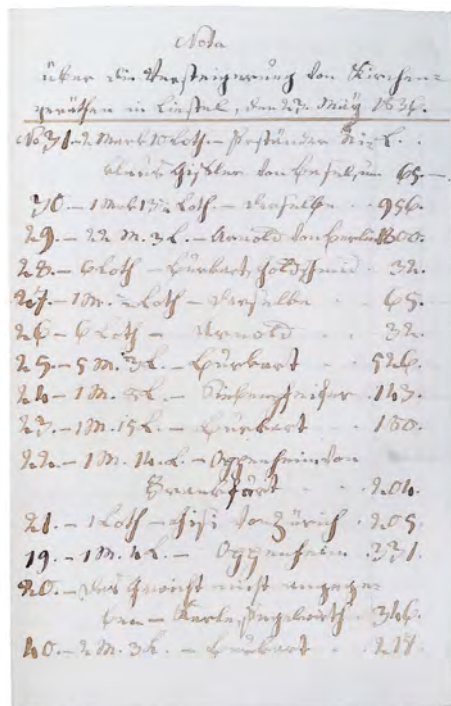 Nota
über die Versteigerung von Kirchen=
geräthen in Liestal, den 23. May 1836.
No 31.- 2 Mark 10 Loth.-
von Basel, um 65.-
30.- 1 Mark 13½ Loth.- derselbe . . 956.
29.- 22 M. 3 L.- Arnold von
28.- 6 Loth - Burkart Goldschmid . 32.
27.- 1 M. Loth - derselbe . . 65.
26.- 6 Loth - Arnold . . 32.
25.- 5 M. 3 L.- Burkart . . 526.
24.- 1 M. L.- 143.
23.- 1 M. 15 L.- Burkart . . 180.
22.- 1 M. 14 L.- Oppenheim von
Frankfurt . . 204.
21.- 1 Loth - von Zürich . 205.
19.- 1 M. 4 L.- Oppenheim . 331.
20.- das Gewicht nicht angege=
ben - 346.
40.- 2 M. 3 L.- Burkart . . 218.